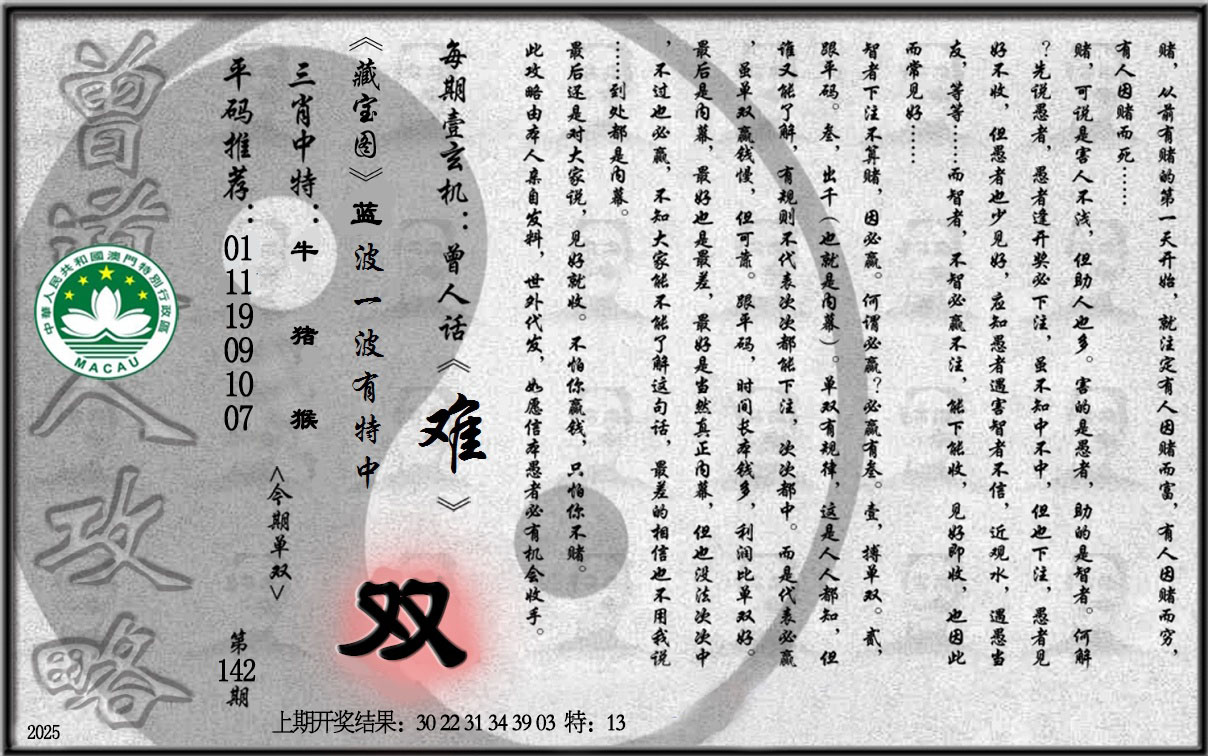 赌，从前有赌的第一天开始，就注定有人因赌而富，有人因赌而穷，
有人因赌而死……
赌，可说是害人不浅，但助人也多。害的是愚者，助的是智者。何解
？先说愚者，愚者逢开奖必下注，虽不知中不中，但也下注，愚者见
好不收，但愚者也少见好，应知愚者遇害智者不信，近观水，遇愚当
友，等等……而智者，不智必赢不注，能下能收，见好即收，也因此
而常见好……
智者下注不算赌，因必赢。何谓必赢？必赢有叁。壹，搏单双。贰，
跟平码。叁，出千（也就是内幕）。单双有规律，这是人人都知，但
谁又能了解，有规则不代表次次都能下注，次次都中。而是代表必赢
，虽单双赢钱慢，但可靠。跟平码，时间长本钱多，利润比单双好。
最后是内幕，最好也是最差，最好是当然真正内幕，但也没法次次中
，不过也必赢，不知大家能不能了解这句话，最差的相信也不用我说
……到处都是内幕。
最后还是对大家说，见好就收。不怕你赢钱，只怕你不赌。
此攻略由本人亲自发料，世外代发，如愿信本愚者必有机会收手。
每期壹玄机：曾人话《难》
《藏宝图》蓝波一波有特中
双
三肖中特：牛 猪 猴
<今期单双>
平码推荐：01 11 19 09 10 07
第142期
曾道人攻略
中華人民共和國澳門特別行政區
MACAU
上期开奖结果：30 22 31 34 39 03 特：13
2025